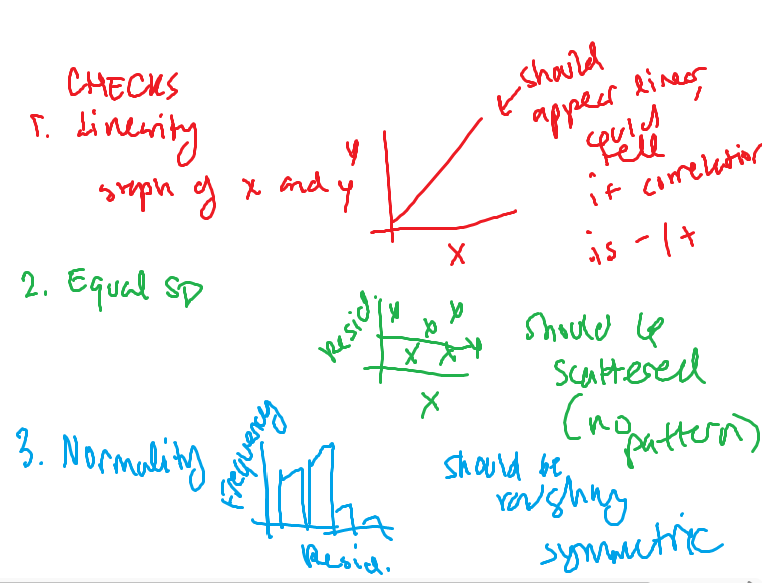 CHECKS
1. Linearity
graph of x and y
y
x
should
appear linear,
could
tell
if correlation
is -1 +
2. Equal SD
Resid.
x
should be
scattered
(no
pattern)
3. Normality
Frequency
Resid.
should be
roughly
symmetric